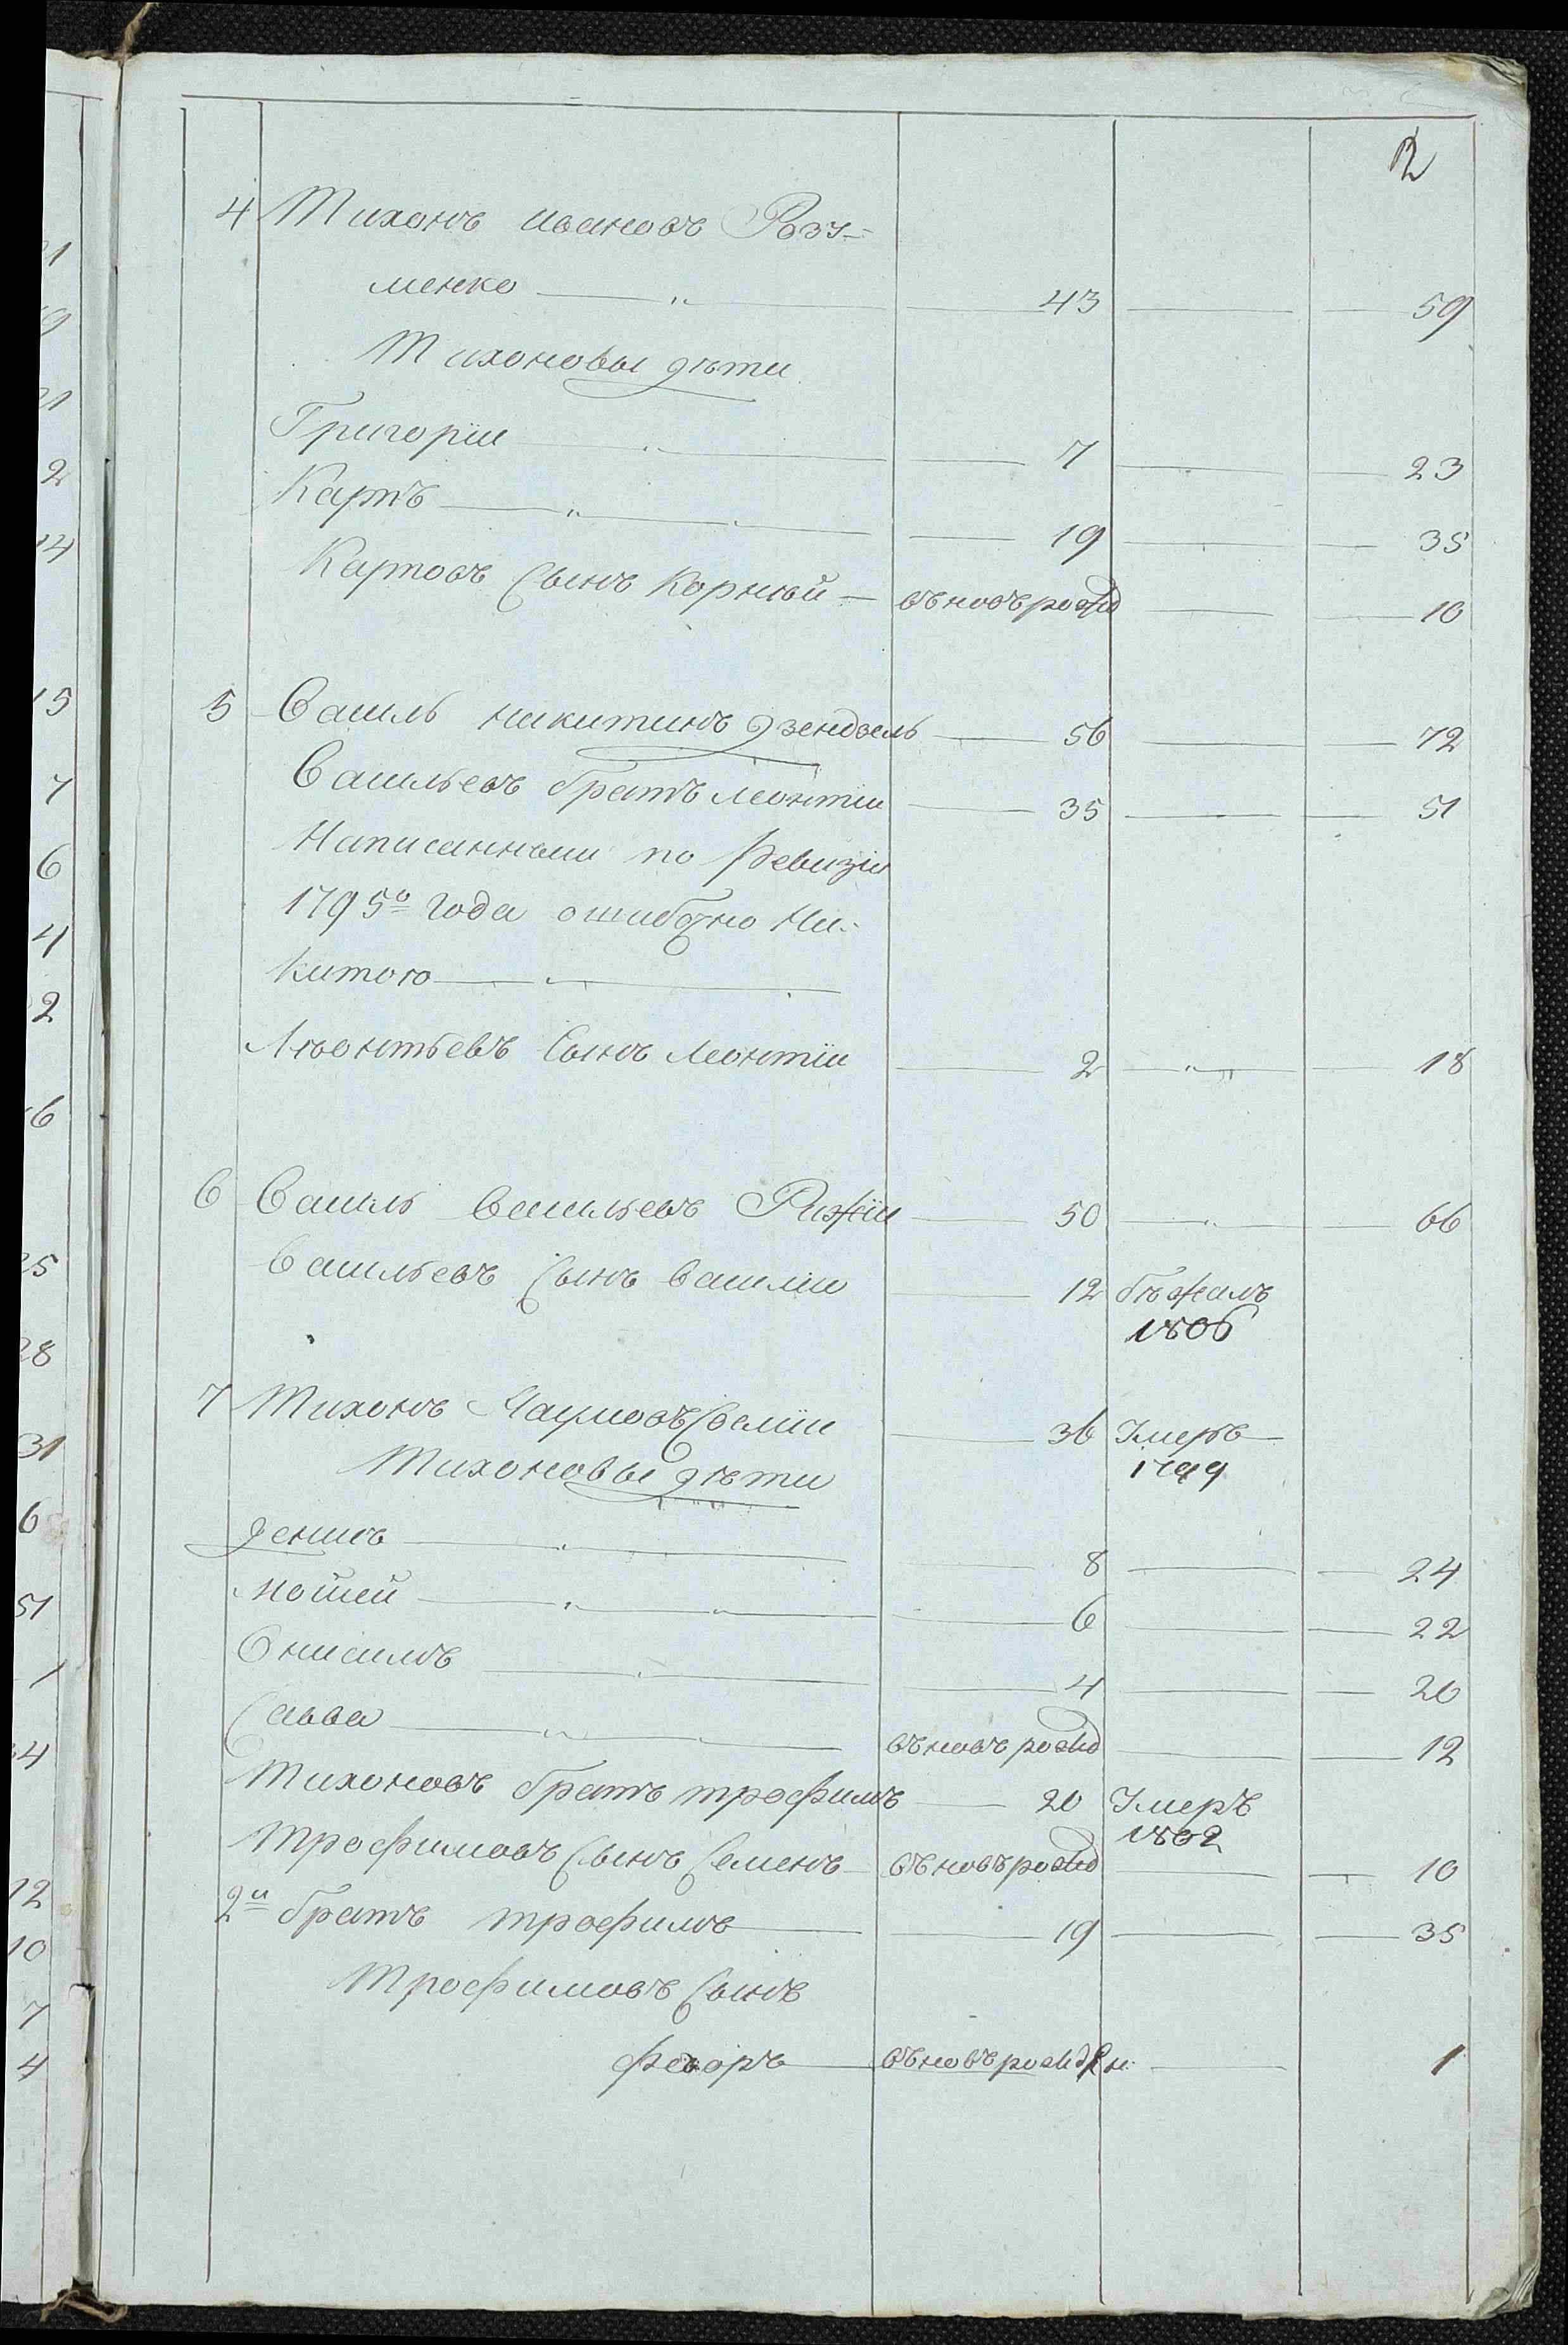 2
4 Тихонъ ивановъ Розу-
менко 43 59
Тихоновы дѣти
Григоріи 7 23
Карпъ 19 35
Карповъ Сынъ Корнѣй въновь рожд 10
5 Василь никитинъ дзендзель 56 72
Васильевъ братъ леонтіи 35 51
Написанныи по Ревизіи
1795о года ошибочно Ни-
китою
Лѣонтьевъ Сынъ леонтіи 2 18
6 Василь васильевъ Рижіи 50 66
Васильевъ Сынъ василіи 12 бѣжалъ
1806
7 Тихонъ Наумовъ 36 Умеръ
1799
Тихоновы дѣти
денисъ 8 24
мойсей 6 22
Онисимъ 4 20
Савва въновъ рожд 12
Тихоновъ братъ трофимъ 20 Умеръ
1802
трофимовъ Сынъ Семенъ въновъ рожд 10
2й братъ трофимъ 19 35
Трофимовъ Сынъ
федоръ въновъ рожден 1